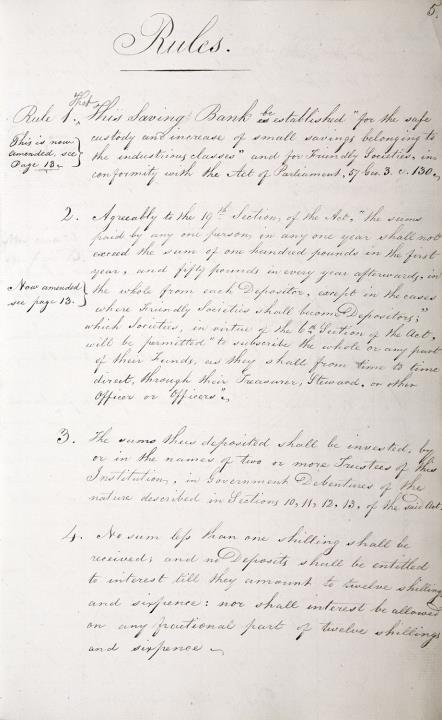 5.
Rules.
Rule 1. That This Saving Bank be established "for the safe
custody and increase of small savings belonging to
the industrious classes" and for Friendly Societies, in
conformity with the Act of Parliament, 57 Geo. 3. c. 130.
This is now
amended, see
Page 13.
2. Agreeably to the 19th Section, of the Act, "the sums
paid by any one person, in any one year shall not
exceed the sum of one hundred pounds in the first
year, and fifty pounds in every year afterwards, in
the whole from each Depositor, except in the cases
where Friendly Societies shall become Depositors;"
which Societies, in virtue of the 6th Section of the Act,
will be permitted "to subscribe the whole or any part
of their Funds, as they shall from time to time
direct, through their Treasurer, Steward, or other
Officer or Officers".
Now amended
see page 13.
3. The sums thus deposited shall be invested, by
or in the names of two or more Trustees of this
Institution, in Government Debentures of the
nature described in Sections 10, 11, 12, 13, of the said Act.
4. No sum less than one shilling shall be
received; and no Deposits shall be entitled
to interest till they amount to twelve shillings
and sixpence: nor shall interest be allowed
on any fractional part of twelve shillings
and sixpence